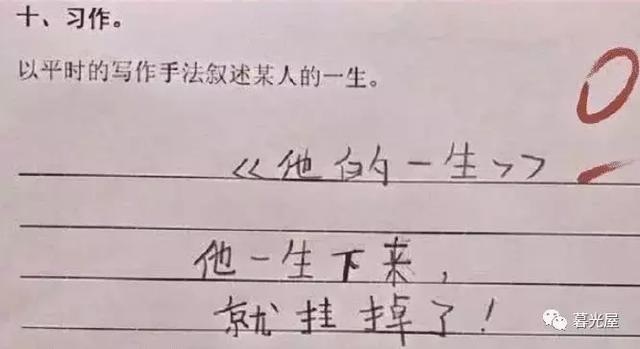 十、习作。
以平时的写作手法叙述某人的一生。
0
《他的一生》
他一生下来，
就挂掉了！
暮光屋